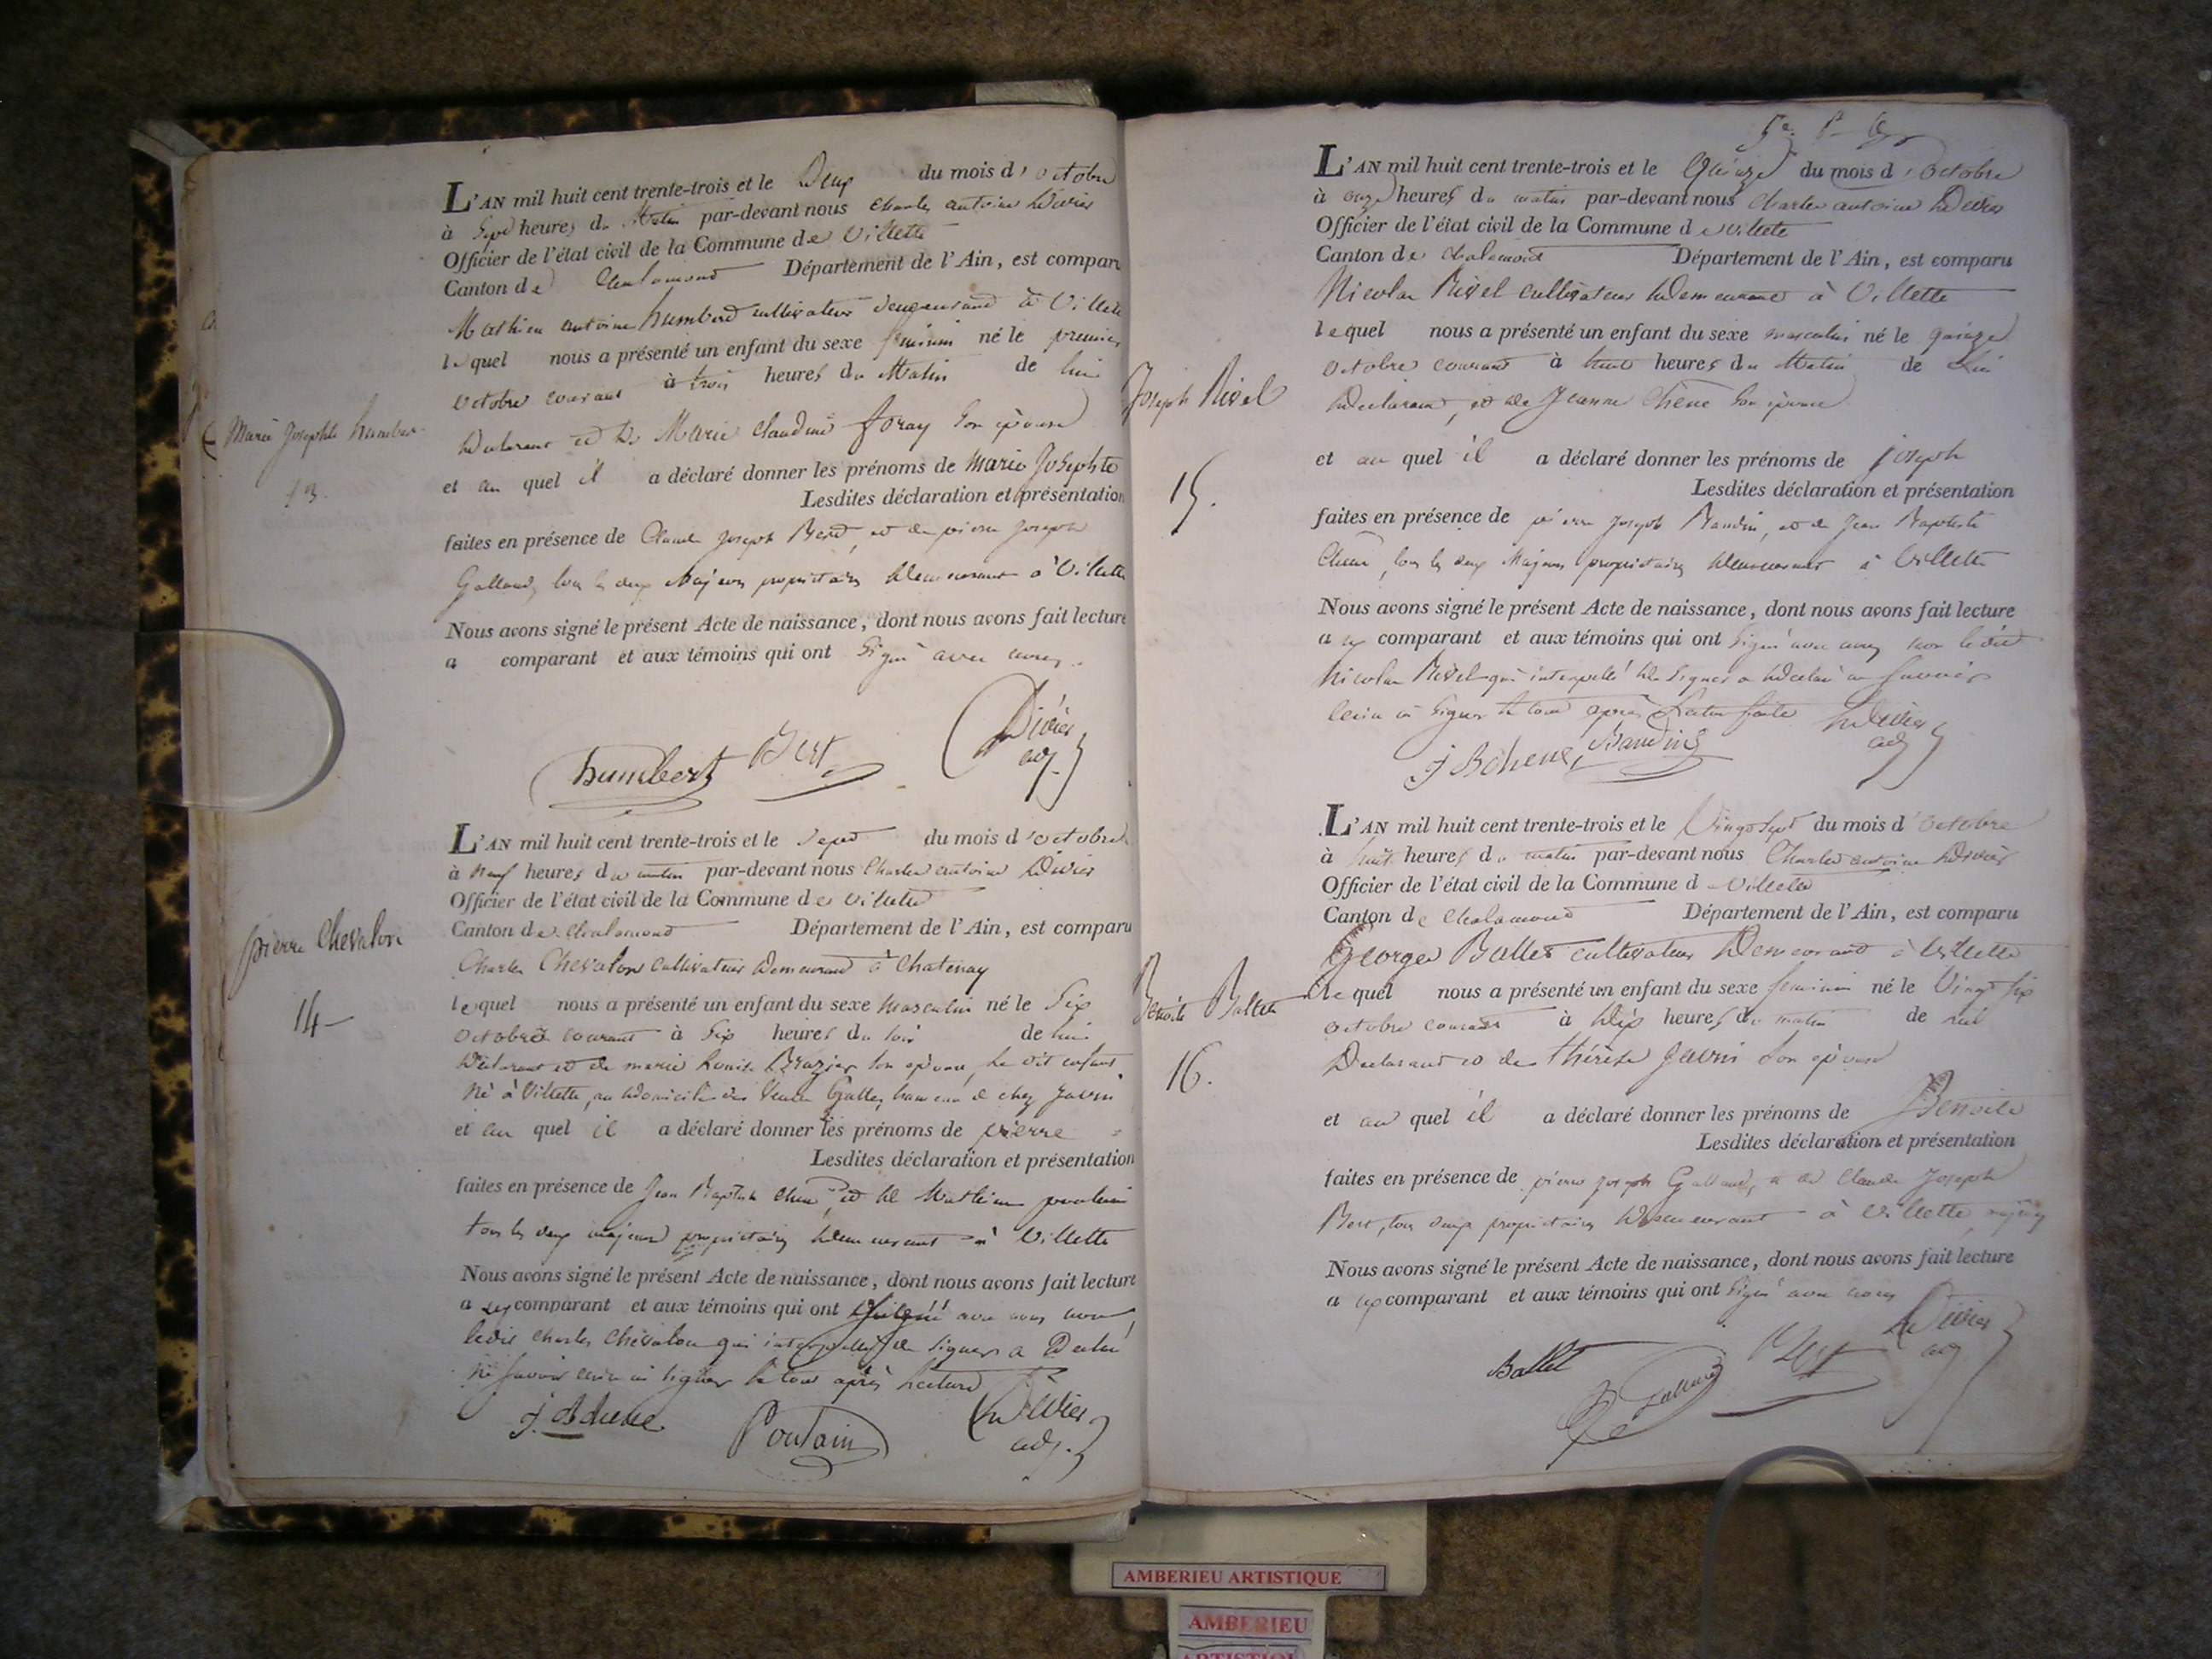 L'AN mil huit cent trente-trois et le Deux du mois d'octobre
à Sept heures du Matin par-devant nous Charles antoine Divier
Officier de l'état civil de la Commune de Villette
Canton de Chalamont Département de l'Ain, est comparu
Mathieu antoine humbert cultivateur demeurant à Villette
lequel nous a présenté un enfant du sexe féminin né le premier
octobre courant à trois heures du Matin de lui
Déclarant et de Marie Claudine foray Son épouse
Marie Josephte humbert
et au quel il a déclaré donner les prénoms de marie Josephte
13.
Lesdites déclaration et présentation
faites en présence de Claude Joseph Bert, et de pierre Joseph
Galland, tous les deux Majeurs propriétaires demeurant à Villette
Nous avons signé le présent Acte de naissance, dont nous avons fait lecture
a comparant et aux témoins qui ont Signé avec nous.
humbert Bert Divier
adj.
L'AN mil huit cent trente-trois et le Sept du mois d'octobre
à neuf heures du matin par-devant nous Charles antoine Divier
Officier de l'état civil de la Commune de Villette
Canton de Chalamont Département de l'Ain, est comparu
pierre Chevalon
Charles Chevalon cultivateur demeurant à Chatenay
lequel nous a présenté un enfant du sexe masculin né le Six
14
octobre courant à Six heures du soir de lui
Déclarant et de marie Louise Brazier son épouse, le dit enfant
né à Villette, au domicile de chez Javni
et au quel il a déclaré donner les prénoms de pierre
Lesdites déclaration et présentation
faites en présence de Jean Baptiste chene et de Mathieu
tous les deux majeurs propriétaires demeurant à Villette
Nous avons signé le présent Acte de naissance, dont nous avons fait lecture
a comparant et aux témoins qui ont signé avec nous non
ledit Charles Chevalon qui interpellé de signer a Déclaré
ne savoir écrire ni signer le tout après lecture
J. B chene Poulain Divier
adj.
L'AN mil huit cent trente-trois et le Quinze du mois d'octobre
à onze heures du matin par-devant nous Charles antoine Divier
Officier de l'état civil de la Commune de villette
Canton de Chalamont Département de l'Ain, est comparu
Nicolas Rivel cultivateur demeurant à Villette
lequel nous a présenté un enfant du sexe masculin né le quinze
octobre courant à huit heures du Matin de Lui
Joseph Rivel
Déclarant, et de Jeanne Chêne Son épouse
et au quel il a déclaré donner les prénoms de joseph
15.
Lesdites déclaration et présentation
faites en présence de pierre Joseph Baudin, et de Jean Baptiste
Chene, tous les deux Majeurs propriétaires demeurant à Villette
Nous avons signé le présent Acte de naissance, dont nous avons fait lecture
a comparant et aux témoins qui ont Signé avec nous non ledit
Nicolas Rivel qui interpellé de Signer a déclaré ne Savoir
écrire ni Signer le tout après Lecture faite Divier
adj
J B chene, Baudin
L'AN mil huit cent trente-trois et le Vingt Sept du mois d'octobre
à huit heures du matin par-devant nous Charles antoine Divier
Officier de l'état civil de la Commune d Villette
Canton de Chalamont Département de l'Ain, est comparu
George Ballet cultivateur Demeurant à Villette
lequel nous a présenté un enfant du sexe féminin né le Vingt Six
Benoite Ballet
octobre courant à dix heures du matin de lui
Déclarant et de thérèse Javni Son épouse
16.
et au quel il a déclaré donner les prénoms de Benoite
Lesdites déclaration et présentation
faites en présence de pierre joseph Galland, et de Claude Joseph
Bert, tous deux propriétaires demeurant à Villette majeurs
Nous avons signé le présent Acte de naissance, dont nous avons fait lecture
a comparant et aux témoins qui ont Signé avec nous
Ballet Galland Bert Divier
adj
AMBERIEU ARTISTIQUE
AMBERIEU
ARTISTIQUE